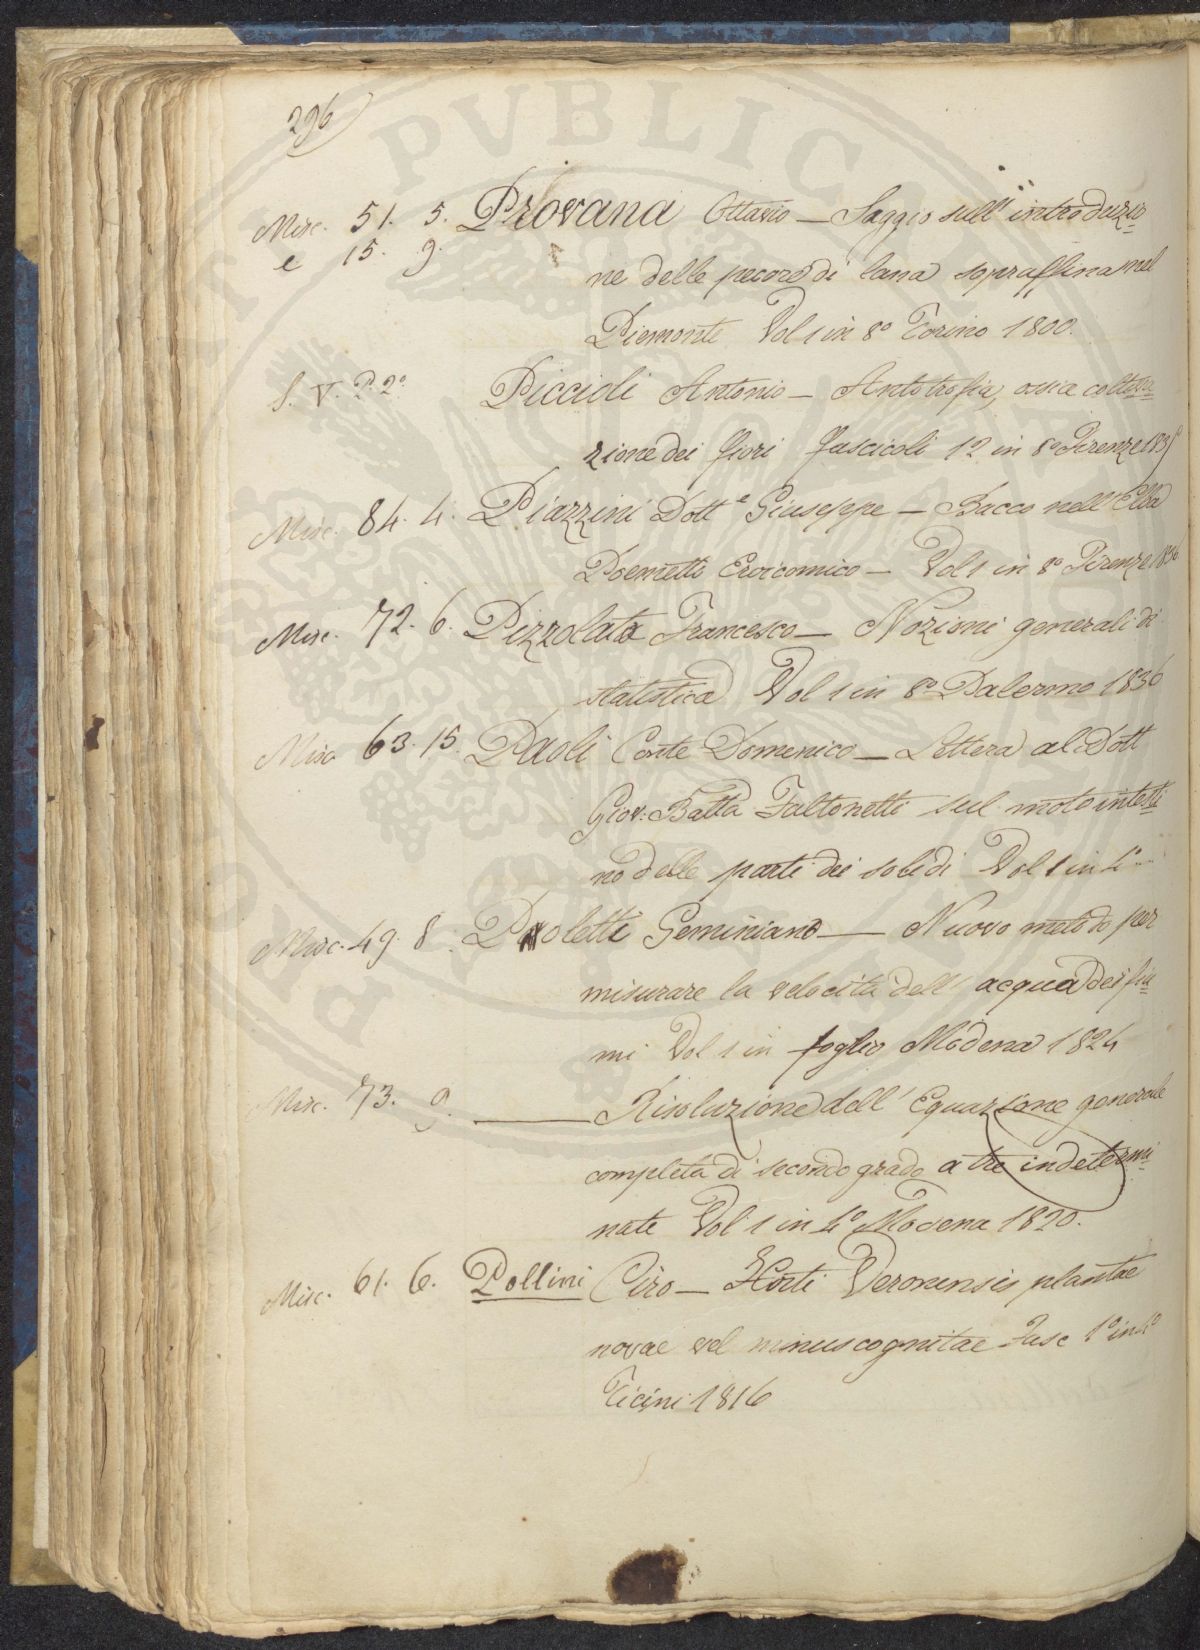 296
Misc. 51. 5. Provana Ottavio — Saggio sull'introduzio=
e 15. 9. ne delle pecore di lana sopraffina nel
Piemonte Vol 1 in 8º Torino 1800.
S. V. P. 2º Piccioli Antonio — Antotrofia, ossia coltiva=
zione dei fiori fascicoli 12 in 8º Firenze
Misc. 84. 4. Piazzini Dott.e Giuseppe — Bacco nell'Elba
Poemetto Eroicomico — Vol 1 in 8º Firenze 1836
Misc. 72. 6. Pizzolato Francesco — Nozioni generali di
statistica Vol 1 in 8º Palermo 1836
Misc 63. 15. Paoli Conte Domenico — Lettera al Dott
Giov: Batta Faltonetti sul moto intesti=
no delle parti dei solidi Vol 1 in 4º
Misc. 49. 8. Poletti Geminiano — Nuovo metodo per
misurare la velocità dell'acqua dei fiu=
mi Vol 1 in foglio Modena 1824
Misc. 73. 9. — Risoluzione dell'Equazione generale
completa di secondo grado a tre indetermi=
nate Vol 1 in 4º Modena 1820.
Misc. 61. 6. Pollini Ciro — Horti Veronensis plantae
novae vel minus cognitae Fasc 1º in 4º
Ticini 1816